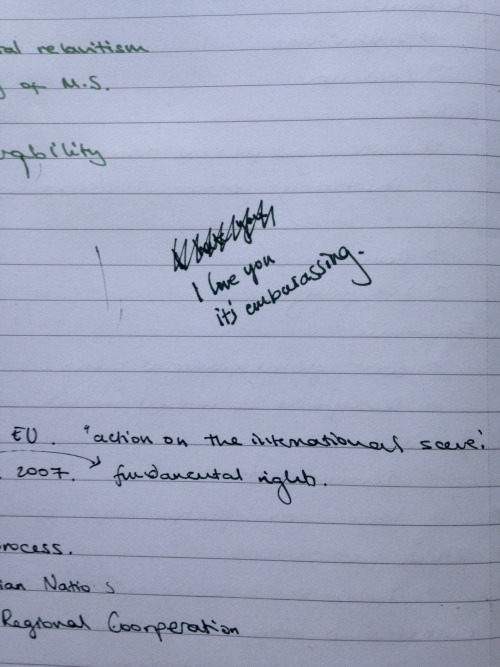 al relavitism
y of M.S.
gability
I love you
it's embarassing.
EU. "action on the international scene"
2007. fundamental rights.
rocess.
ian Natio s
Regional Coorperation